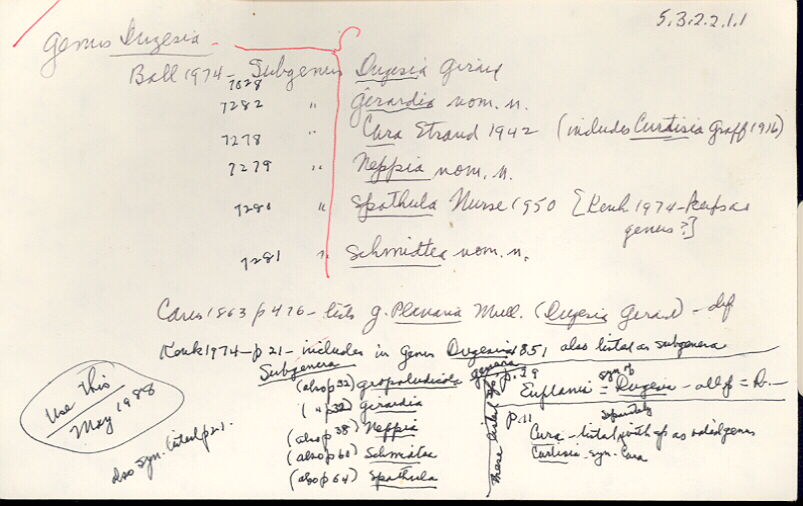 5.3.2.2.1.1
Genus Dugesia
Ball 1974 - Subgenus Dugesia Girard
7028
7282 " Girardia nom. n.
7278 " Cura Strand 1942 (includes Curtisia Graff 1916)
7279 " Neppia nom. n.
7280 " Spathula Nurse 1950 [Kenk 1974 - keeps as
genus ?]
7281 " Schmidtea nom. n.
Carus 1863 p 476 - lists g. Planaria Mull. (Dugesia Girard) -
Kenk 1974 - p 21 - includes in Genus Dugesia 1851 also listed as subgenera
Subgenera
(also p 32) 
(" p 32) Girardia
(also p 38) Neppia
(also p 60) Schmidtea
(also p 64) Spathula
these listed as genera
p. 29
syn of
Euplanaria = Dugesia - all sp = D.
p. 11
separately
Cura - listed with sp as valid genus
Curtisia - syn. Cura
Use This
May 1988
also syn. listed p 21.